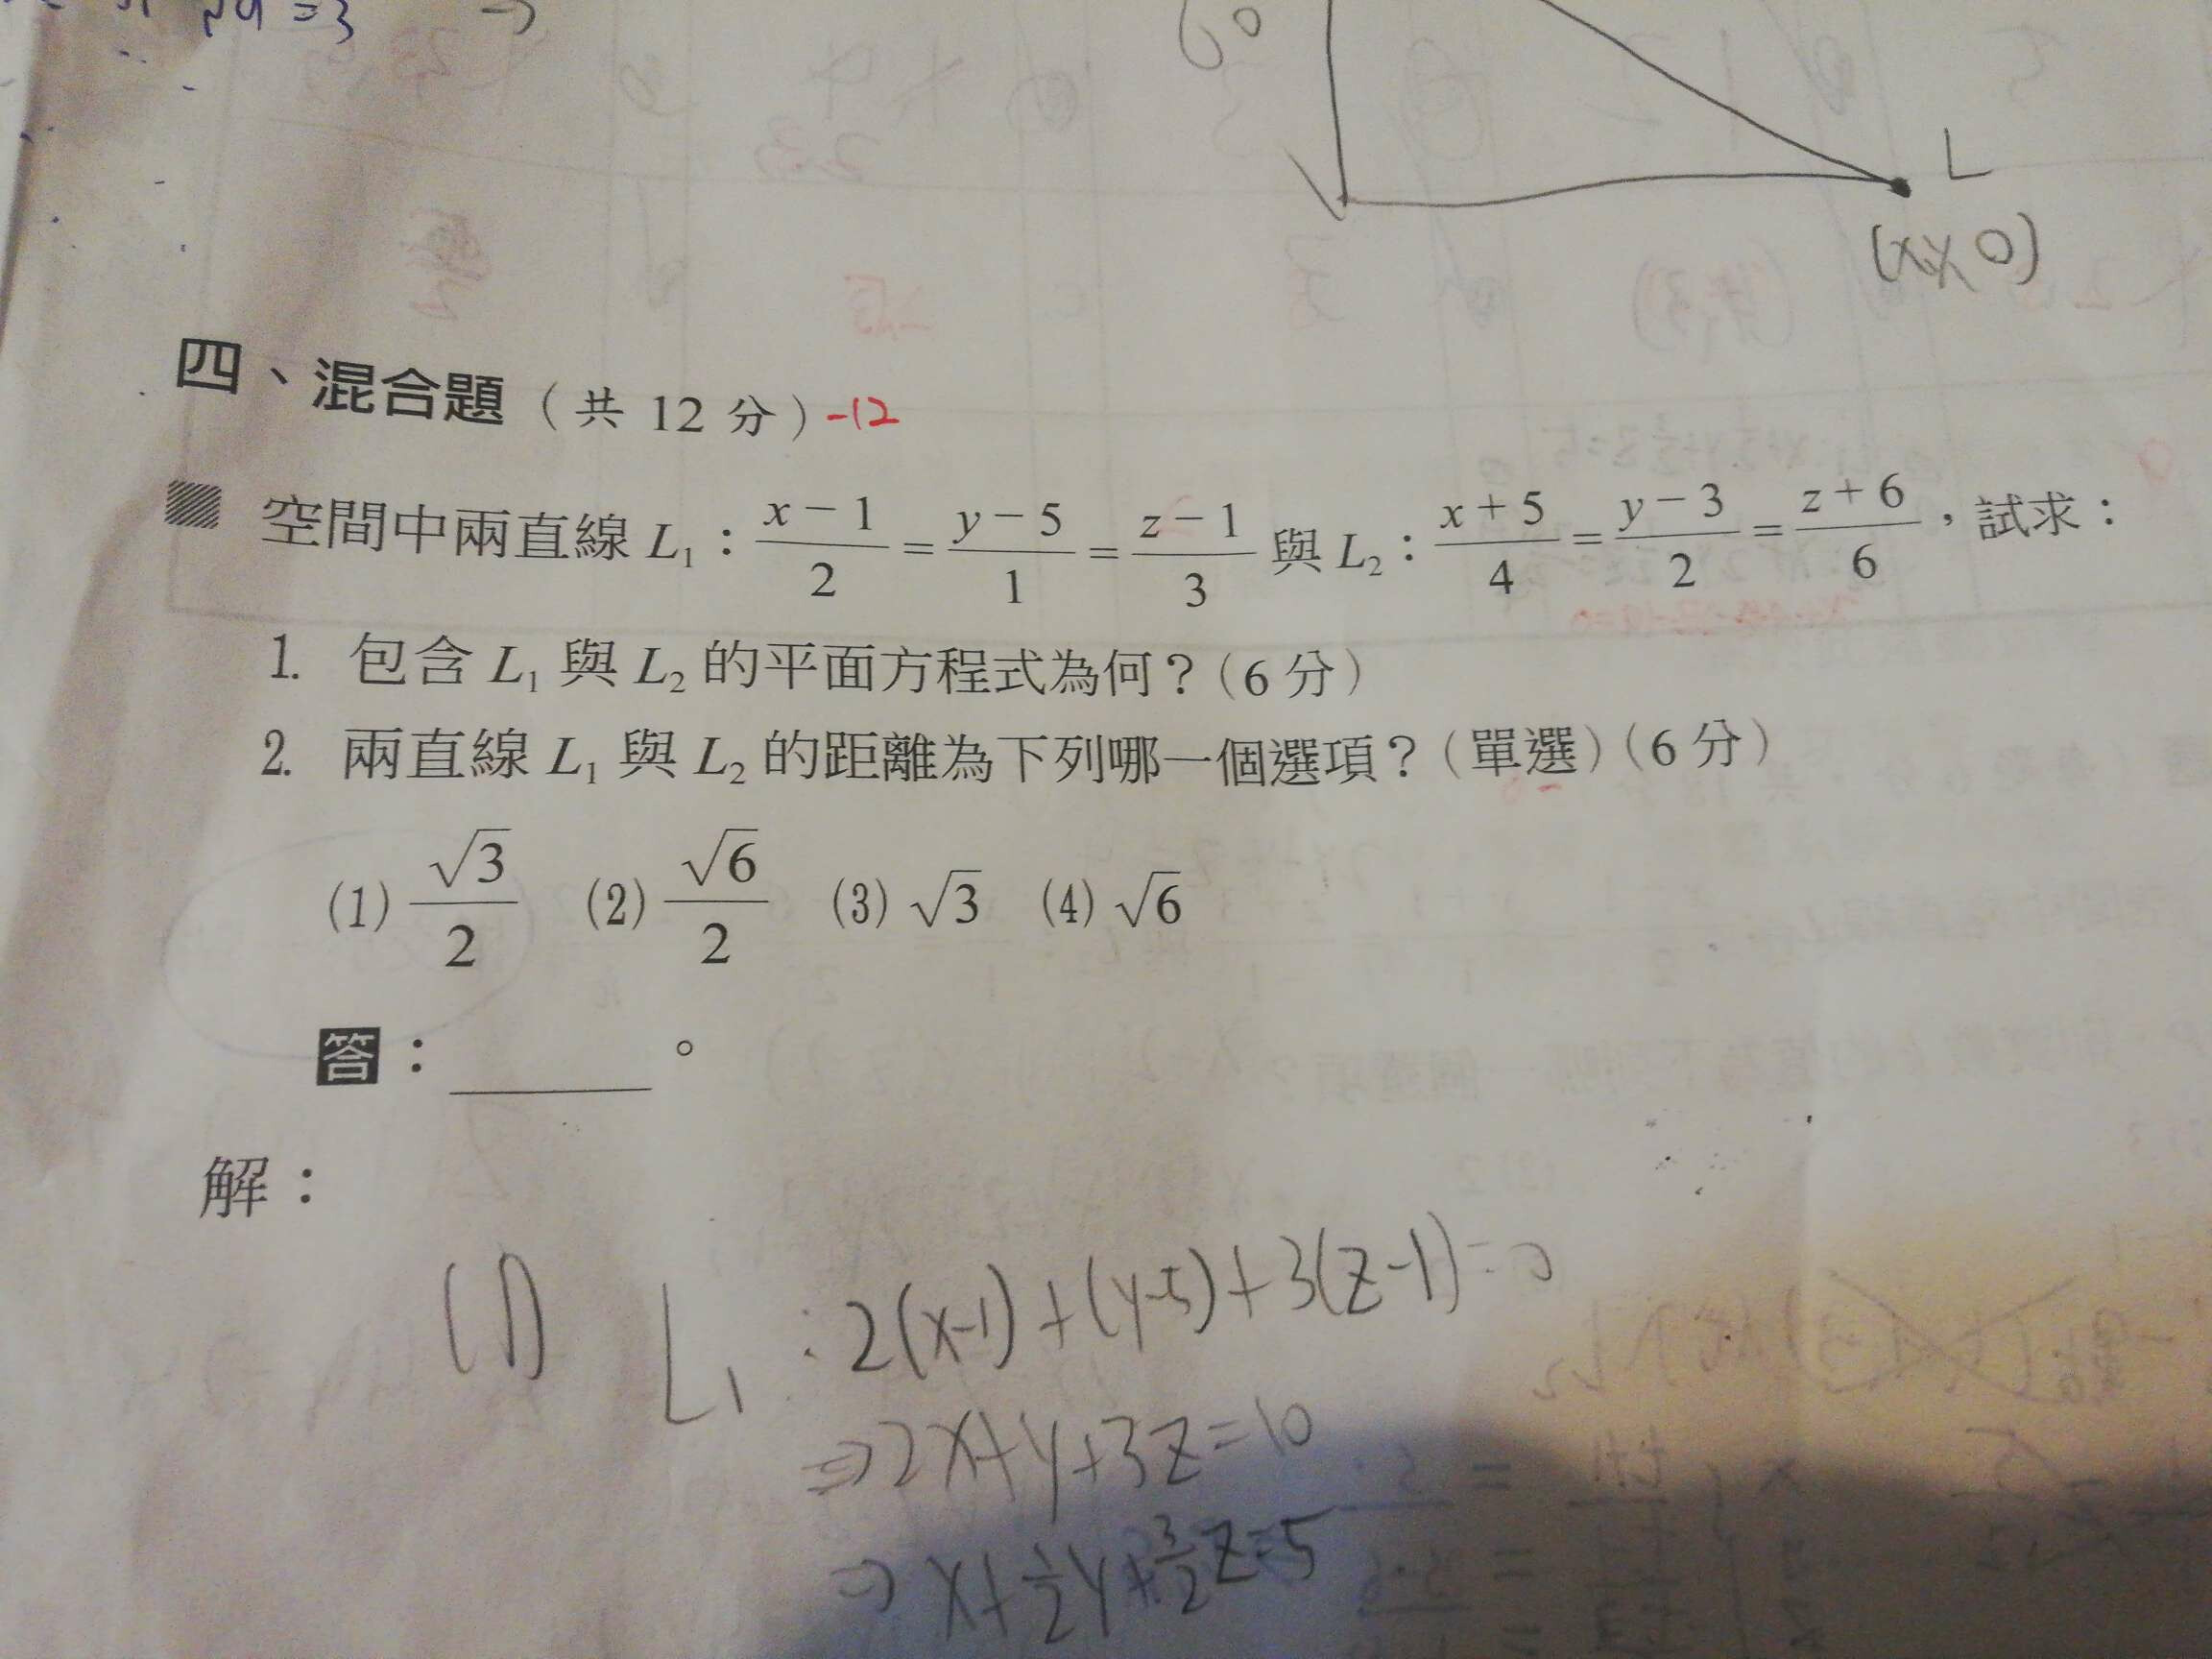 =3 →
60
L
(x,y,0)
四、混合題（共 12 分）-12
空間中兩直線 L₁：(x－1)/2 = (y－5)/1 = (z－1)/3 與 L₂：(x＋5)/4 = (y－3)/2 = (z＋6)/6，試求：
1. 包含 L₁ 與 L₂ 的平面方程式為何？(6 分)
2. 兩直線 L₁ 與 L₂ 的距離為下列哪一個選項？(單選)(6 分)
(1) √3/2 (2) √6/2 (3) √3 (4) √6
答：______。
解：
(1) L₁：2(x-1)+(y-5)+3(z-1)=0
⇒2x+y+3z=10
⇒x+1/2y+3/2z=5